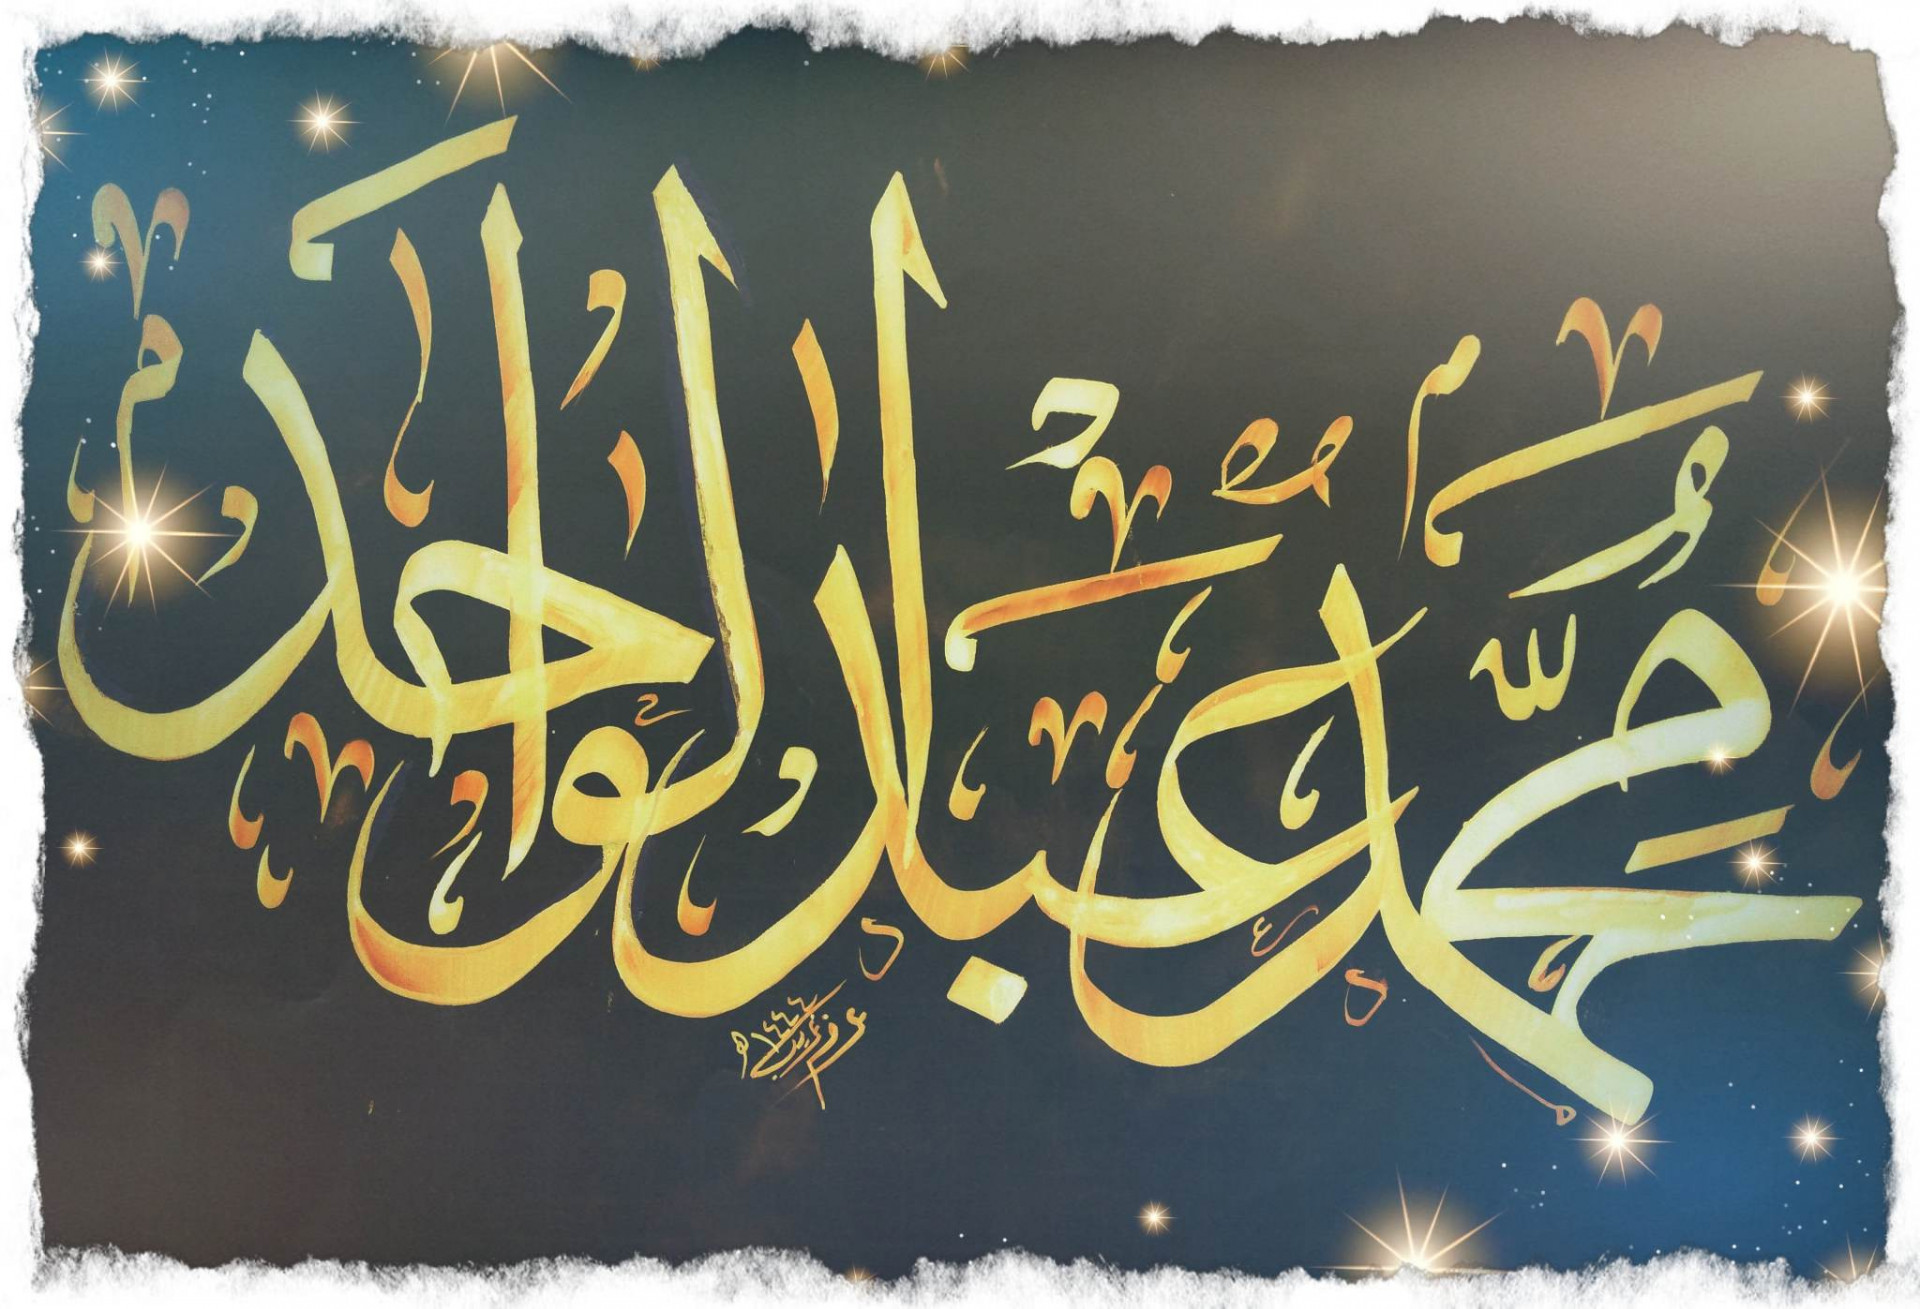 محمد عبد الواحد